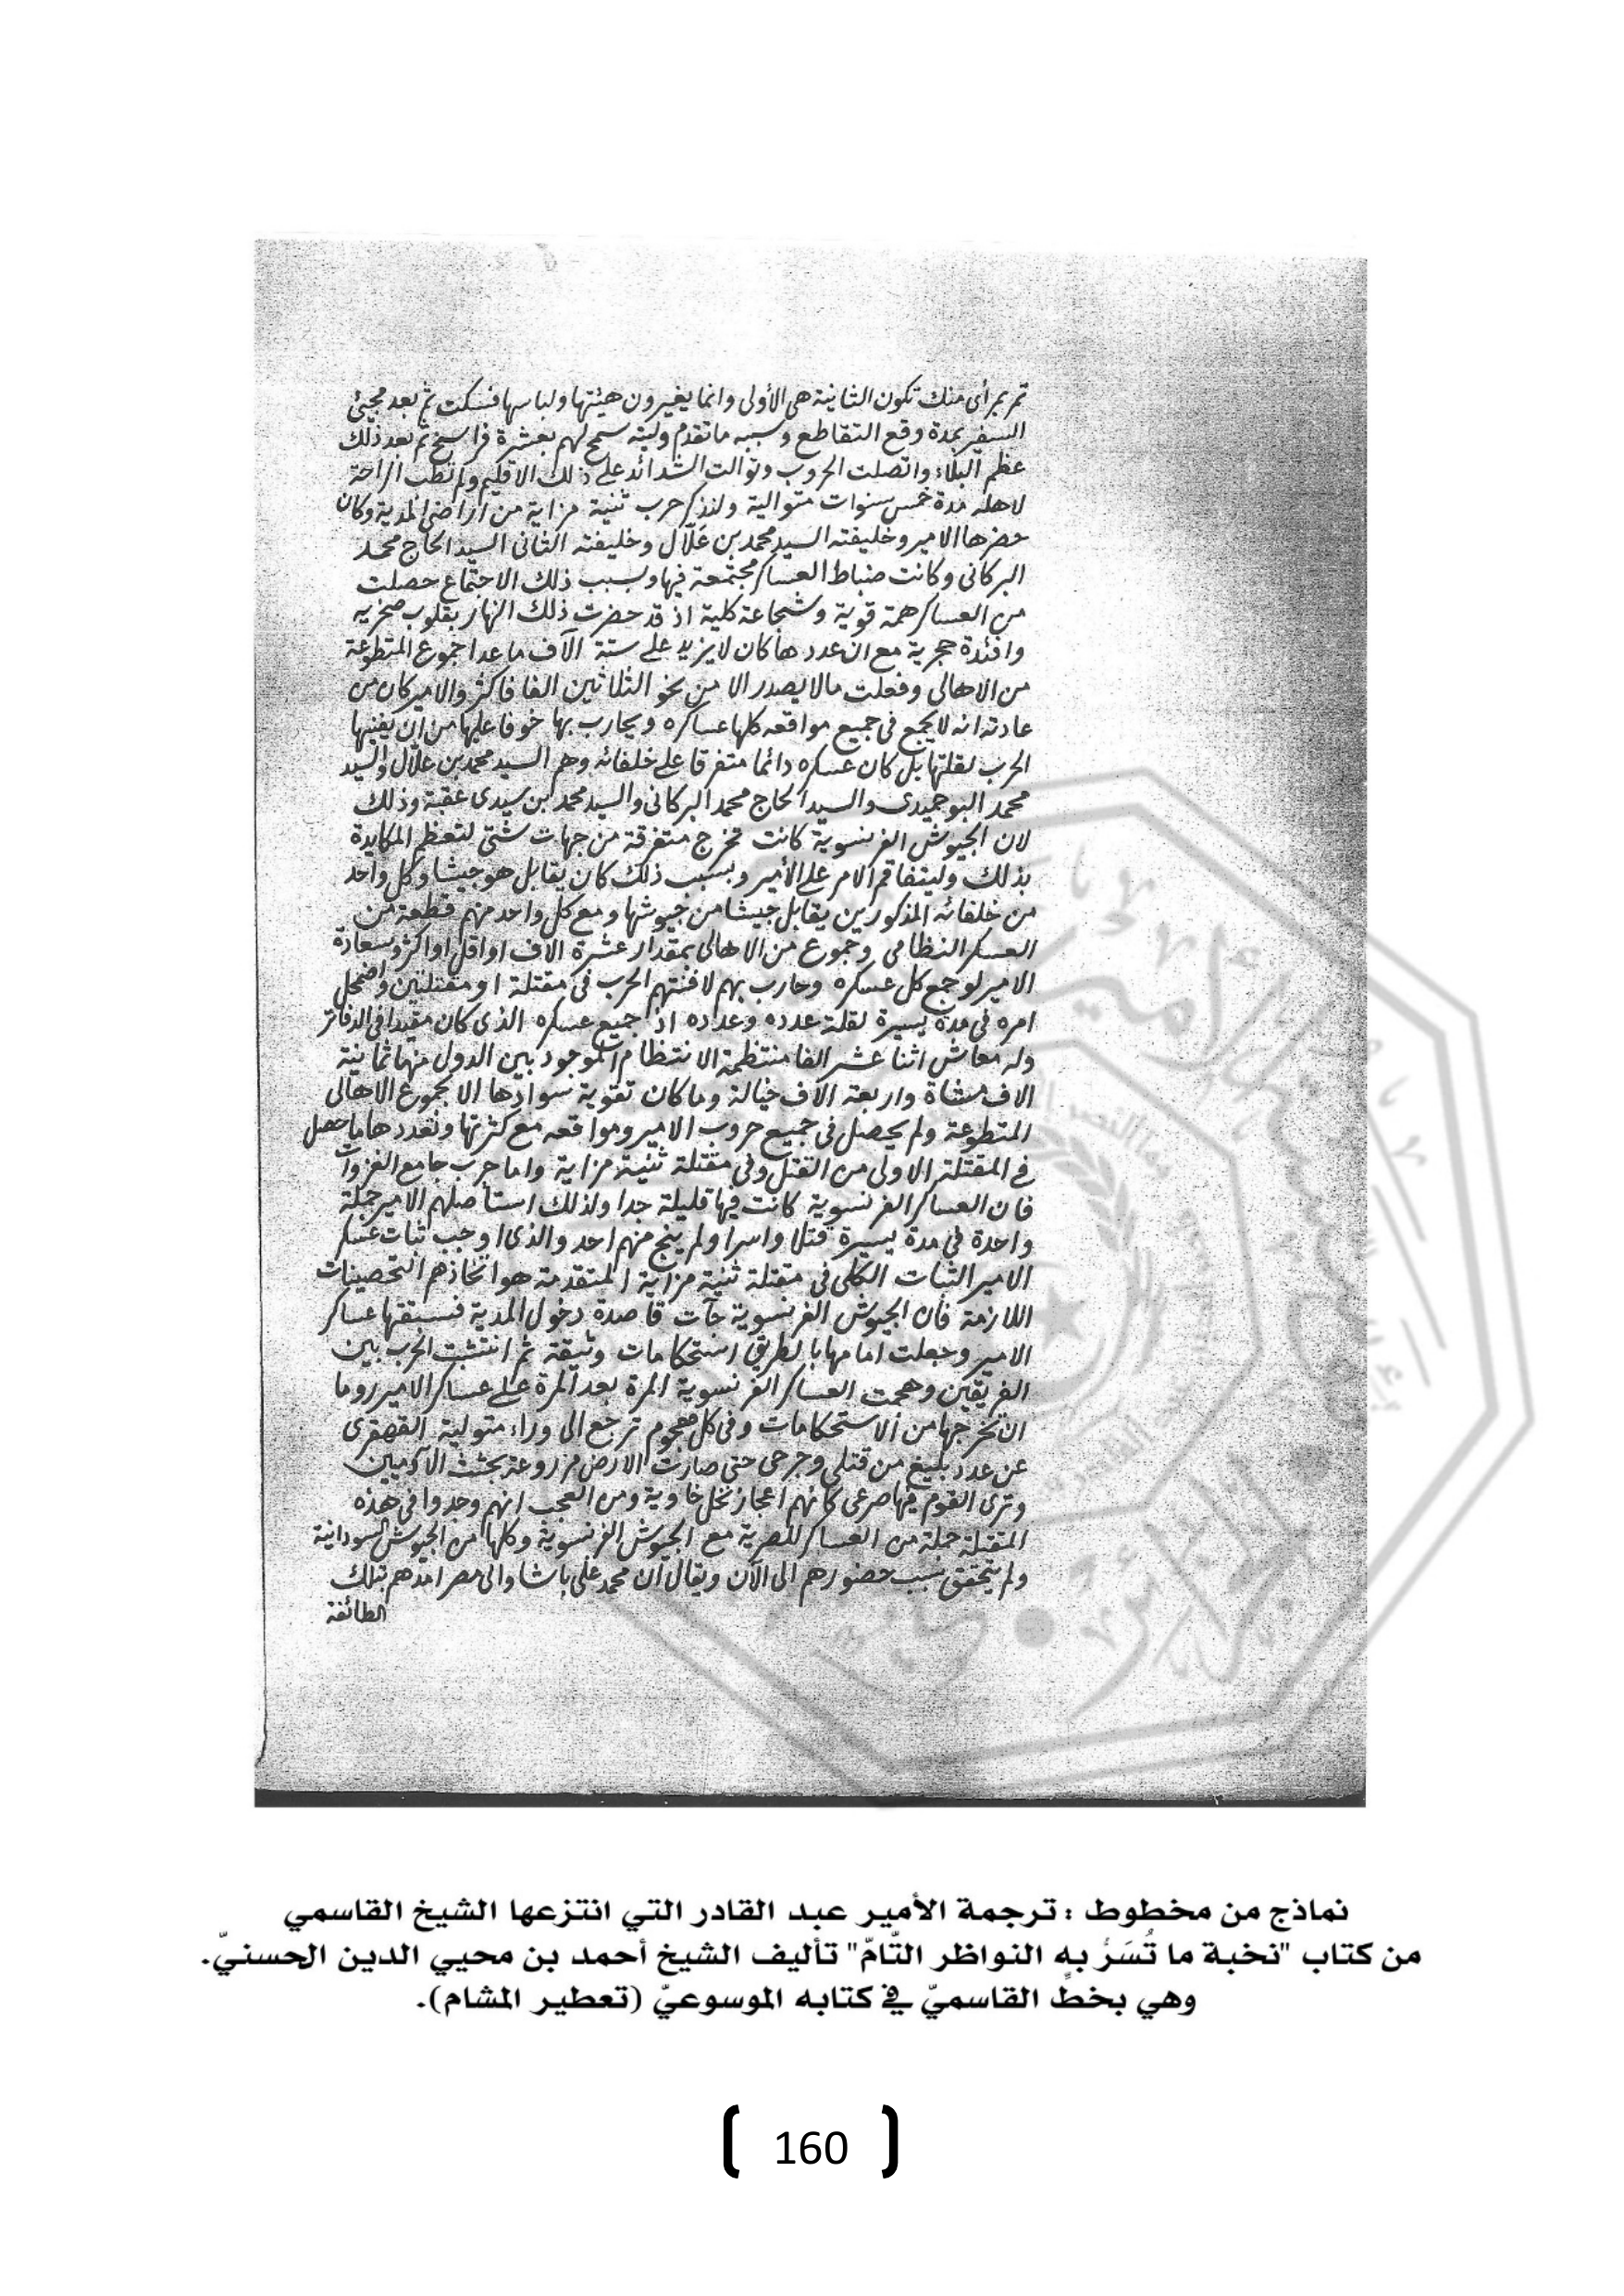 تمر بمرأى منك تكون الثانية هي الأولى وانما يغيرون هيئتها ولباسها فسكت ثم بعد مجيئ
السفير بمدة وقع التقاطع وسببه ما تقدم وليته سمح لهم بعشرة فراسخ ثم بعد ذلك
عظم البلاء واتصلت الحروب وتوالت الشدائد على ذلك الاقليم ولم تطب الراحة
لاهله مدة خمس سنوات متوالية ولنذكر حرب ثنية مزاية من اراضى المدية وكان
حضرها الامير وخليفته السيد محمد بن علّال وخليفته الثانى السيد الحاج محمد
البركانى وكانت ضباط العساكر مجتمعة فيها وبسبب ذلك الاجتماع حصلت
من العساكر همة قوية وشجاعة كلية اذ قد حضرت ذلك النهار بقلوب صخريه
وافئدة حجرية مع ان عددها كان لا يزيد على ستة الآف ما عدا جموع المتطوعة
من الاهالى وفعلت مالا يصدر الا من نحو الثلاثين الفا فاكثر والامير كان من
عادته انه لا يجمع فى جميع مواقعه كلها عساكره ويحارب بها خوفا عليها من ان يفنيها
الحرب لقلتها بل كان عسكره دائما متفرقا على خلفائه وهم السيد محمد بن علّال والسيد
محمد البوحميدى والسيد الحاج محمد البركانى والسيد محمد بن سيدى عقبة وذلك
لان الجيوش الفرنسوية كانت تخرج متفرقة من جهات شتى لتعظم المكايدة
بذلك وليتفاقم الامر على الأمير وبسبب ذلك كان يقابل هو جيشا وكل واحد
من خلفائه المذكورين يقابل جيشا من جيوشها ومع كل واحد منهم قطعة من
العسكر النظامى وجموع من الاهالى بمقدار عشرة الاف او اقل او اكثر وسعادة
الامير لو جمع كل عسكره وحارب بهم لافنتهم الحرب فى مقتلة او مقتلتين واضمحل
امره فى مدة يسيرة لقلة عدده وعدده اذ جميع عسكره الذى كان مقيدا فى الدفاتر
وله معاش اثنا عشر الفا منتظمة الانتظام الموجود بين الدول منها ثمانية
الاف مشاة واربعة الآف خيالة وما كان تقوية سوادها الا بجموع الاهالى
المتطوعة ولم يحصل فى جميع حروب الامير ومواقعه مع كثرتها وتعددها ما حصل
فى المقتلة الاولى من القتل وفى مقتلة ثنية مزاية واما حرب جامع الغزوات
فان العساكر الفرنسوية كانت فيها قليلة جدا ولذلك استأصلهم الامير جملة
واحدة فى مدة يسيرة قتلا واسرا ولم ينج منهم احد والذى اوجب ثبات عسكر
الامير الثبات الكلى فى مقتلة ثنية مزاية المتقدمة هو اتخاذهم التحصينات
اللازمة فان الجيوش الفرنسوية جآت قاصدة دخول المدية فسبقتها عساكر
الامير وجعلت امامها بالطريق استحكامات وثيقة ثم انتشبت الحرب بين
الفريقين وهجمت العساكر الفرنسوية المرة بعد المرة على عساكر الامير روما
ان تخرجها من الاستحكامات وفى كل هجوم ترجع الى وراء متولية القهقرى
عن عدد بليغ من قتلى وجرحى حتى صارت الارض مزروعة بجثث الآدميين
وترى القوم فيها صرعى كانهم اعجاز نخل خاوية ومن العجب انهم وجدوا فى هذه
المقتلة جملة من العساكر المصرية مع الجيوش الفرنسوية وكلها من الجيوش السودانية
ولم يتحقق سبب حضورهم الى الآن ويقال ان محمد على باشا والى مصر امدهم بتلك
الطائفة
نماذج من مخطوط : ترجمة الأمير عبد القادر التي انتزعها الشيخ القاسمي
من كتاب "نخبة ما تُسَرُّ به النواظر التّامّ" تأليف الشيخ أحمد بن محيي الدين الحسنيّ.
وهي بخطّ القاسميّ في كتابه الموسوعيّ (تعطير المشام).
160